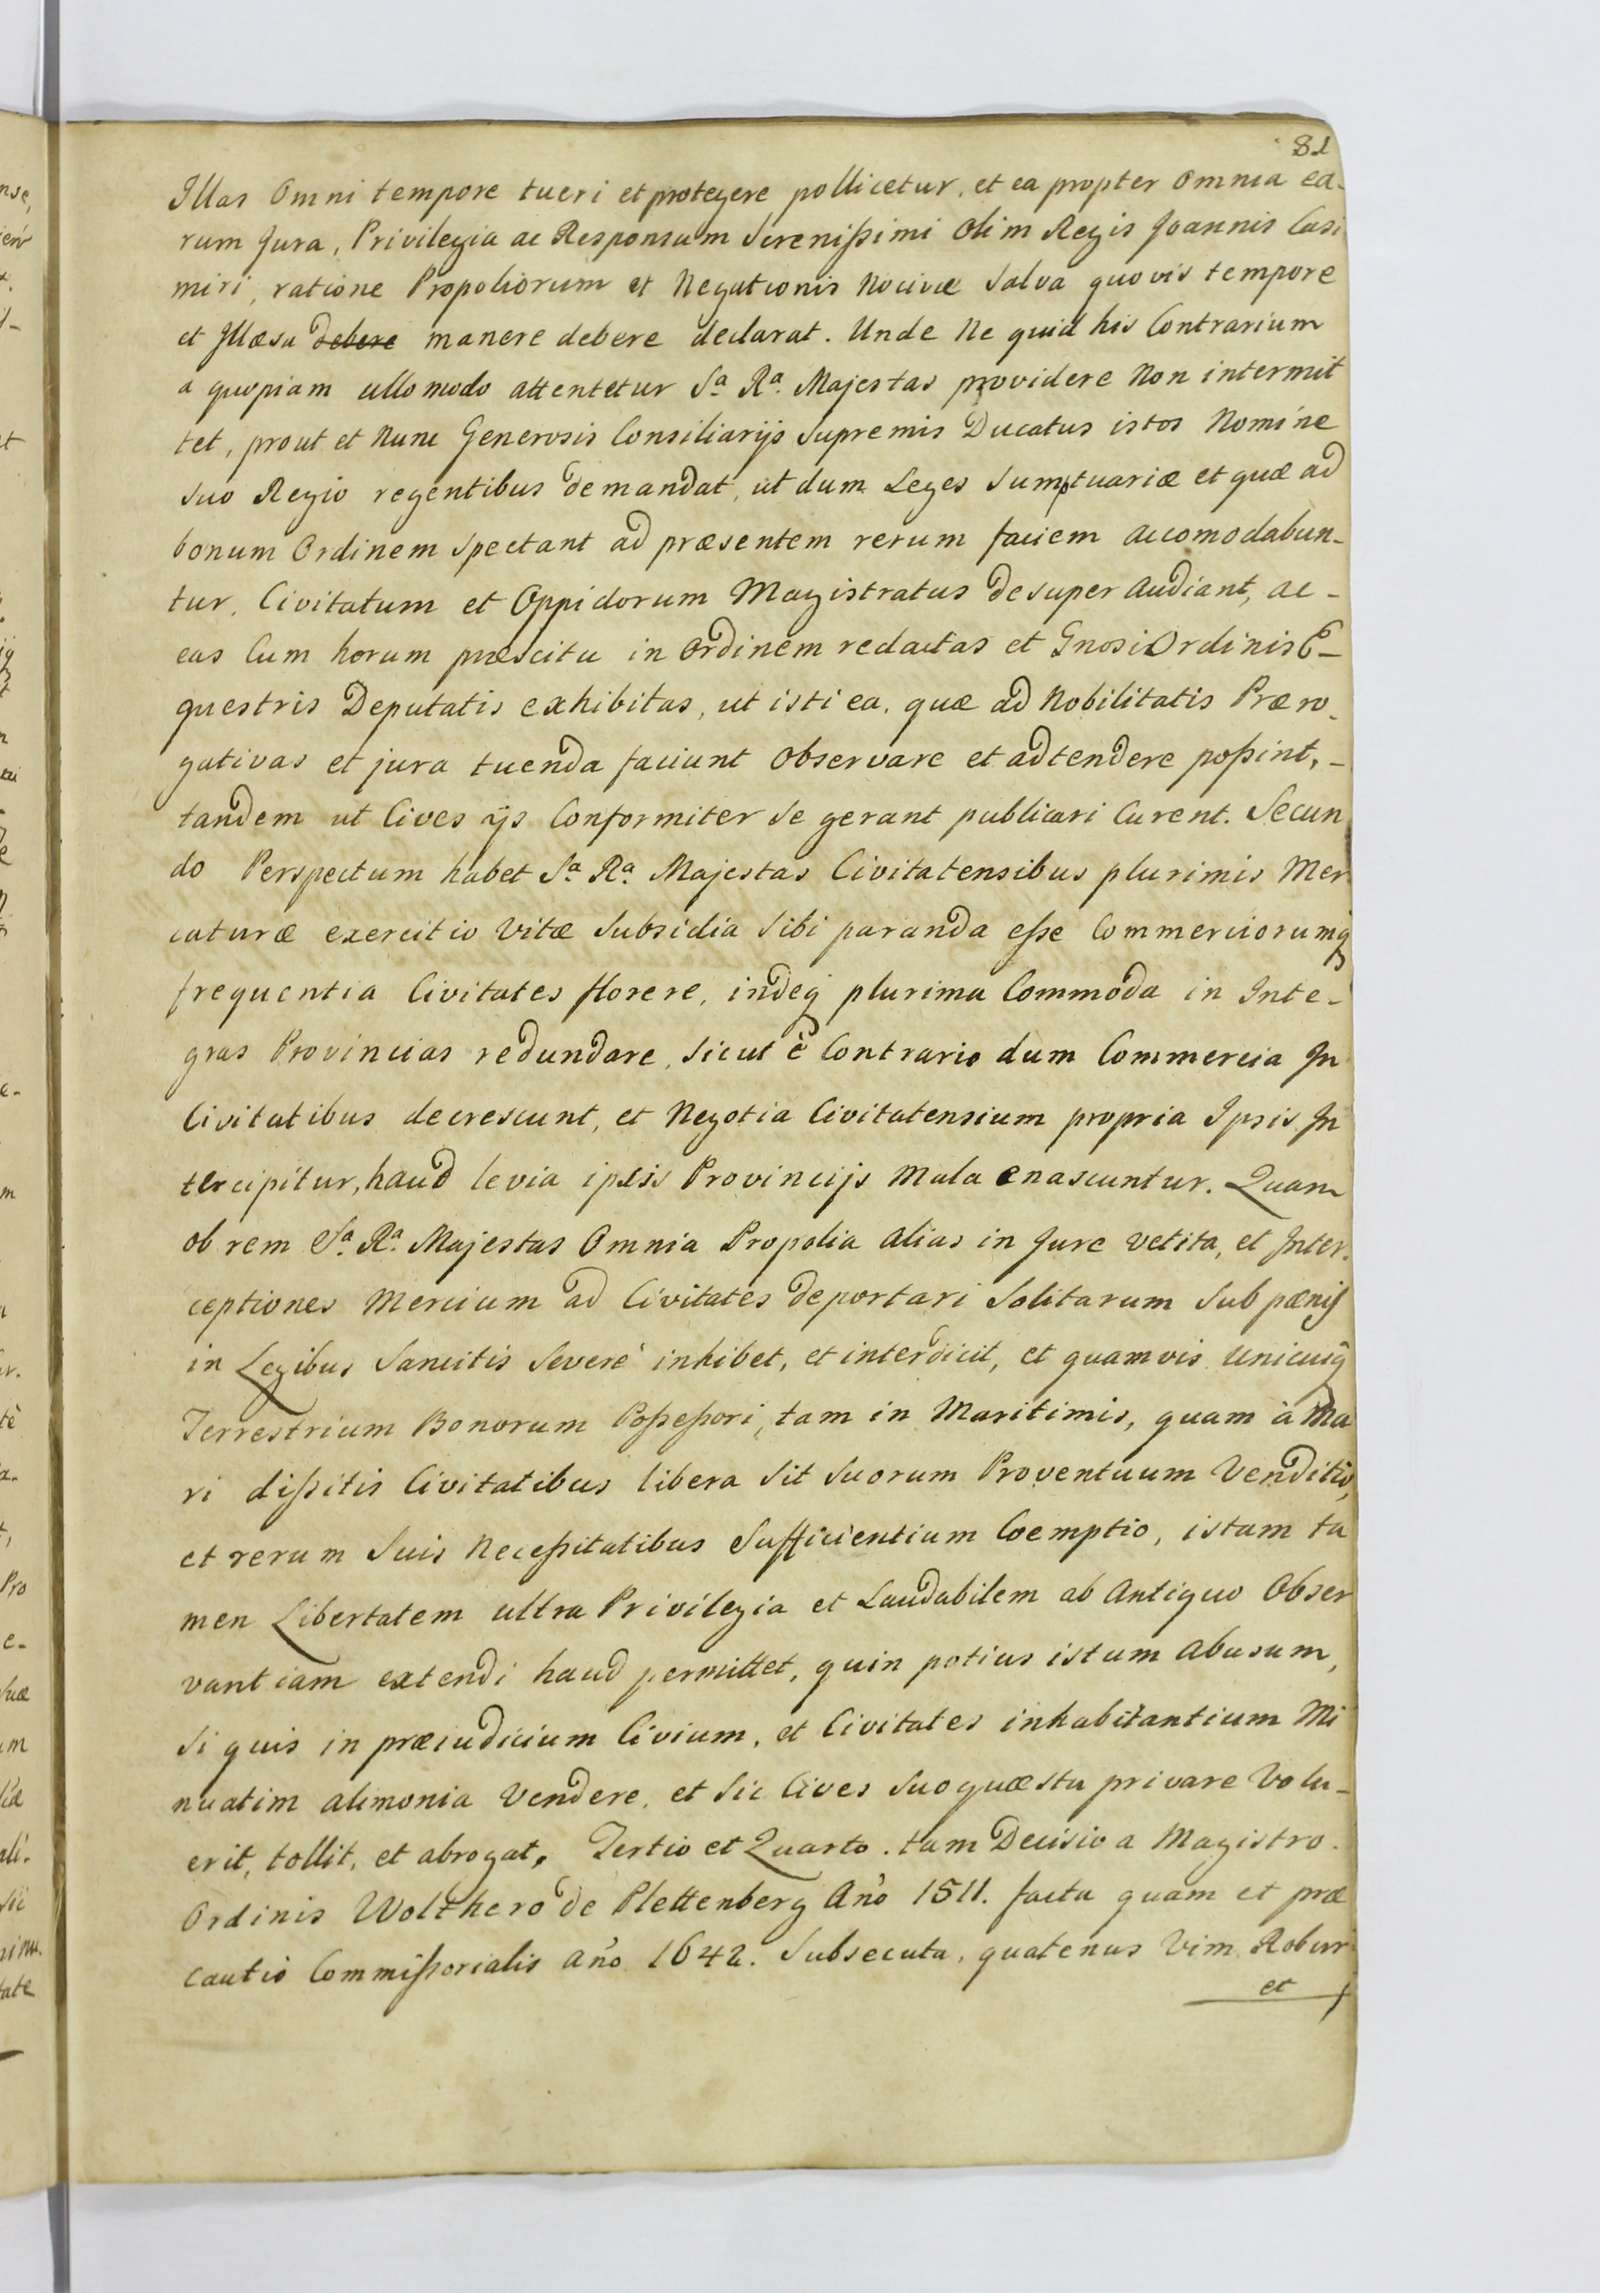 81
Illas Omni tempore tueri et protegere pollicetur, et ea propter Omnia ea-
rum Jura, Privilegia ac Responsum Serenißimi Olim Regis Joannis Casi
miri, ratione Propoliorum et Negationis Nocivæ Salva quovis tempore
et Illæsa debere manere debere declarat. Unde Ne quid his Contrarium
a quopiam ullo modo attentetur Sa. Ra. Majestas providere Non intermit
tet, prout et Nunc Generosis Consiliarijs Supremis Ducatus istos Nomine
suo Regio regentibus demandat, ut dum Leges Sumptuariæ et quæ ad
bonum Ordinem Spectant ad præsentem rerum faciem accomodabun-
tur, Civitatum et Oppidorum Magistratus desuper Audiant, ac -
eas Cum horum præscitu in Ordinem redactas et Gnosi Ordinis E-
questris Deputatis exhibitas, ut isti ea, quæ ad Nobilitatis Præro-
gativas et jura tuenda faciunt Observare et adtendere poßint, -
tandem ut Cives ijs Conformiter Se gerant publicari Curent. Secun
do Perspectum habet Sa. Ra. Majestas Civitatensibus plurimis Mer
caturæ exercitio Vitæ Subsidia Sibi paranda eße Commerciorumq
frequentia Civitates florere, indeq plurima Commoda in Inte-
gras Provincias redundare, Sicut è Contrario dum Commercia In
Civitatibus decrescunt, et Negotia Civitatensium propria Ipsis In
tercipitur, haud levia ipsis Provincijs Mala enascuntur. Quam
ob rem Sa. Ra. Majestas Omnia Propolia alias in Jure vetita, et Inter-
ceptiones Mercium ad Civitates deportari Solitarum Sub pænis
in Legibus Sancitis Severè inhibet, et interdicit, et quamvis Unicuiq
Terrestrium Bonorum Poßeßori, tam in Maritimis, quam à Ma
ri dißitis Civitatibus libera Sit Suorum Proventuum Venditio,
et rerum Suis Neceßitatibus Sufficientium Coemptio, istam ta
men Libertatem ultra Privilegia et Laudabilem ab Antiquo Obser
vantiam extendi haud permittet, quin potius istum Abusum,
Si quis in præiudicium Civium, et Civitates inhabitantium Mi
nuatim alimonia Vendere, et Sic Cives Suo quæstu privare Volu-
erit, tollit, et abrogat. Tertio et Quarto. tam Decisio a Magistro
Ordinis Wolthero de Plettenberg Año 1511. facta quam et præ
cautio Commißorialis Año 1642. Subsecuta, quatenus Vim Robur
et